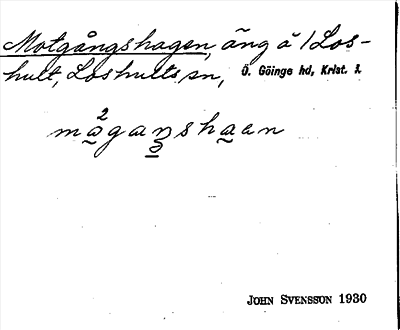 Motgångshagen, äng å 1 Los-
hult, Loshults sn, Ö. Göinge hd, Krist. l.
2
mågaŋshaen
JOHN SVENSSON 1930